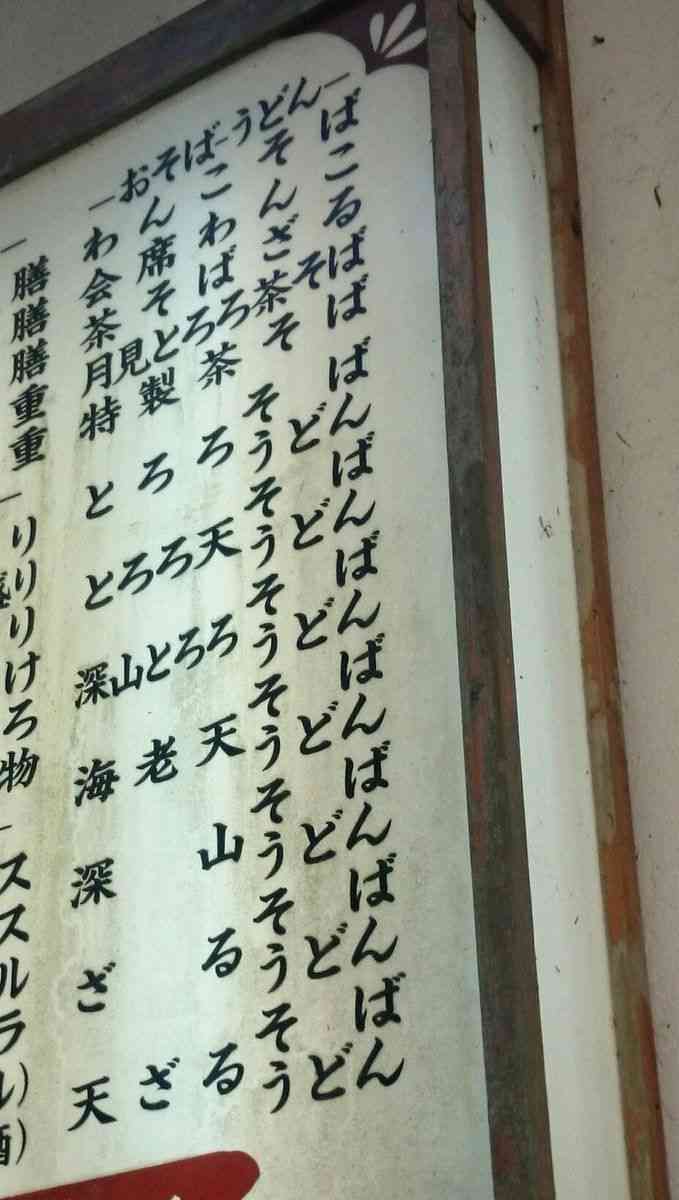 膳
膳
膳
重
重
り
盛り
り
け
ろ
物
ス
ス
ル
ラ
ル)
酒)
―おそば―うどん―
わんこそば
会席わんこ
茶そばざる
月見とろろ茶そば
特製茶そば
とろろそば
うどん
とろろ天そば
うどん
深山とろろそば
うどん
海老天そば
うどん
深山そば
うどん
ざるそば
うどん
天ざるそば
うどん